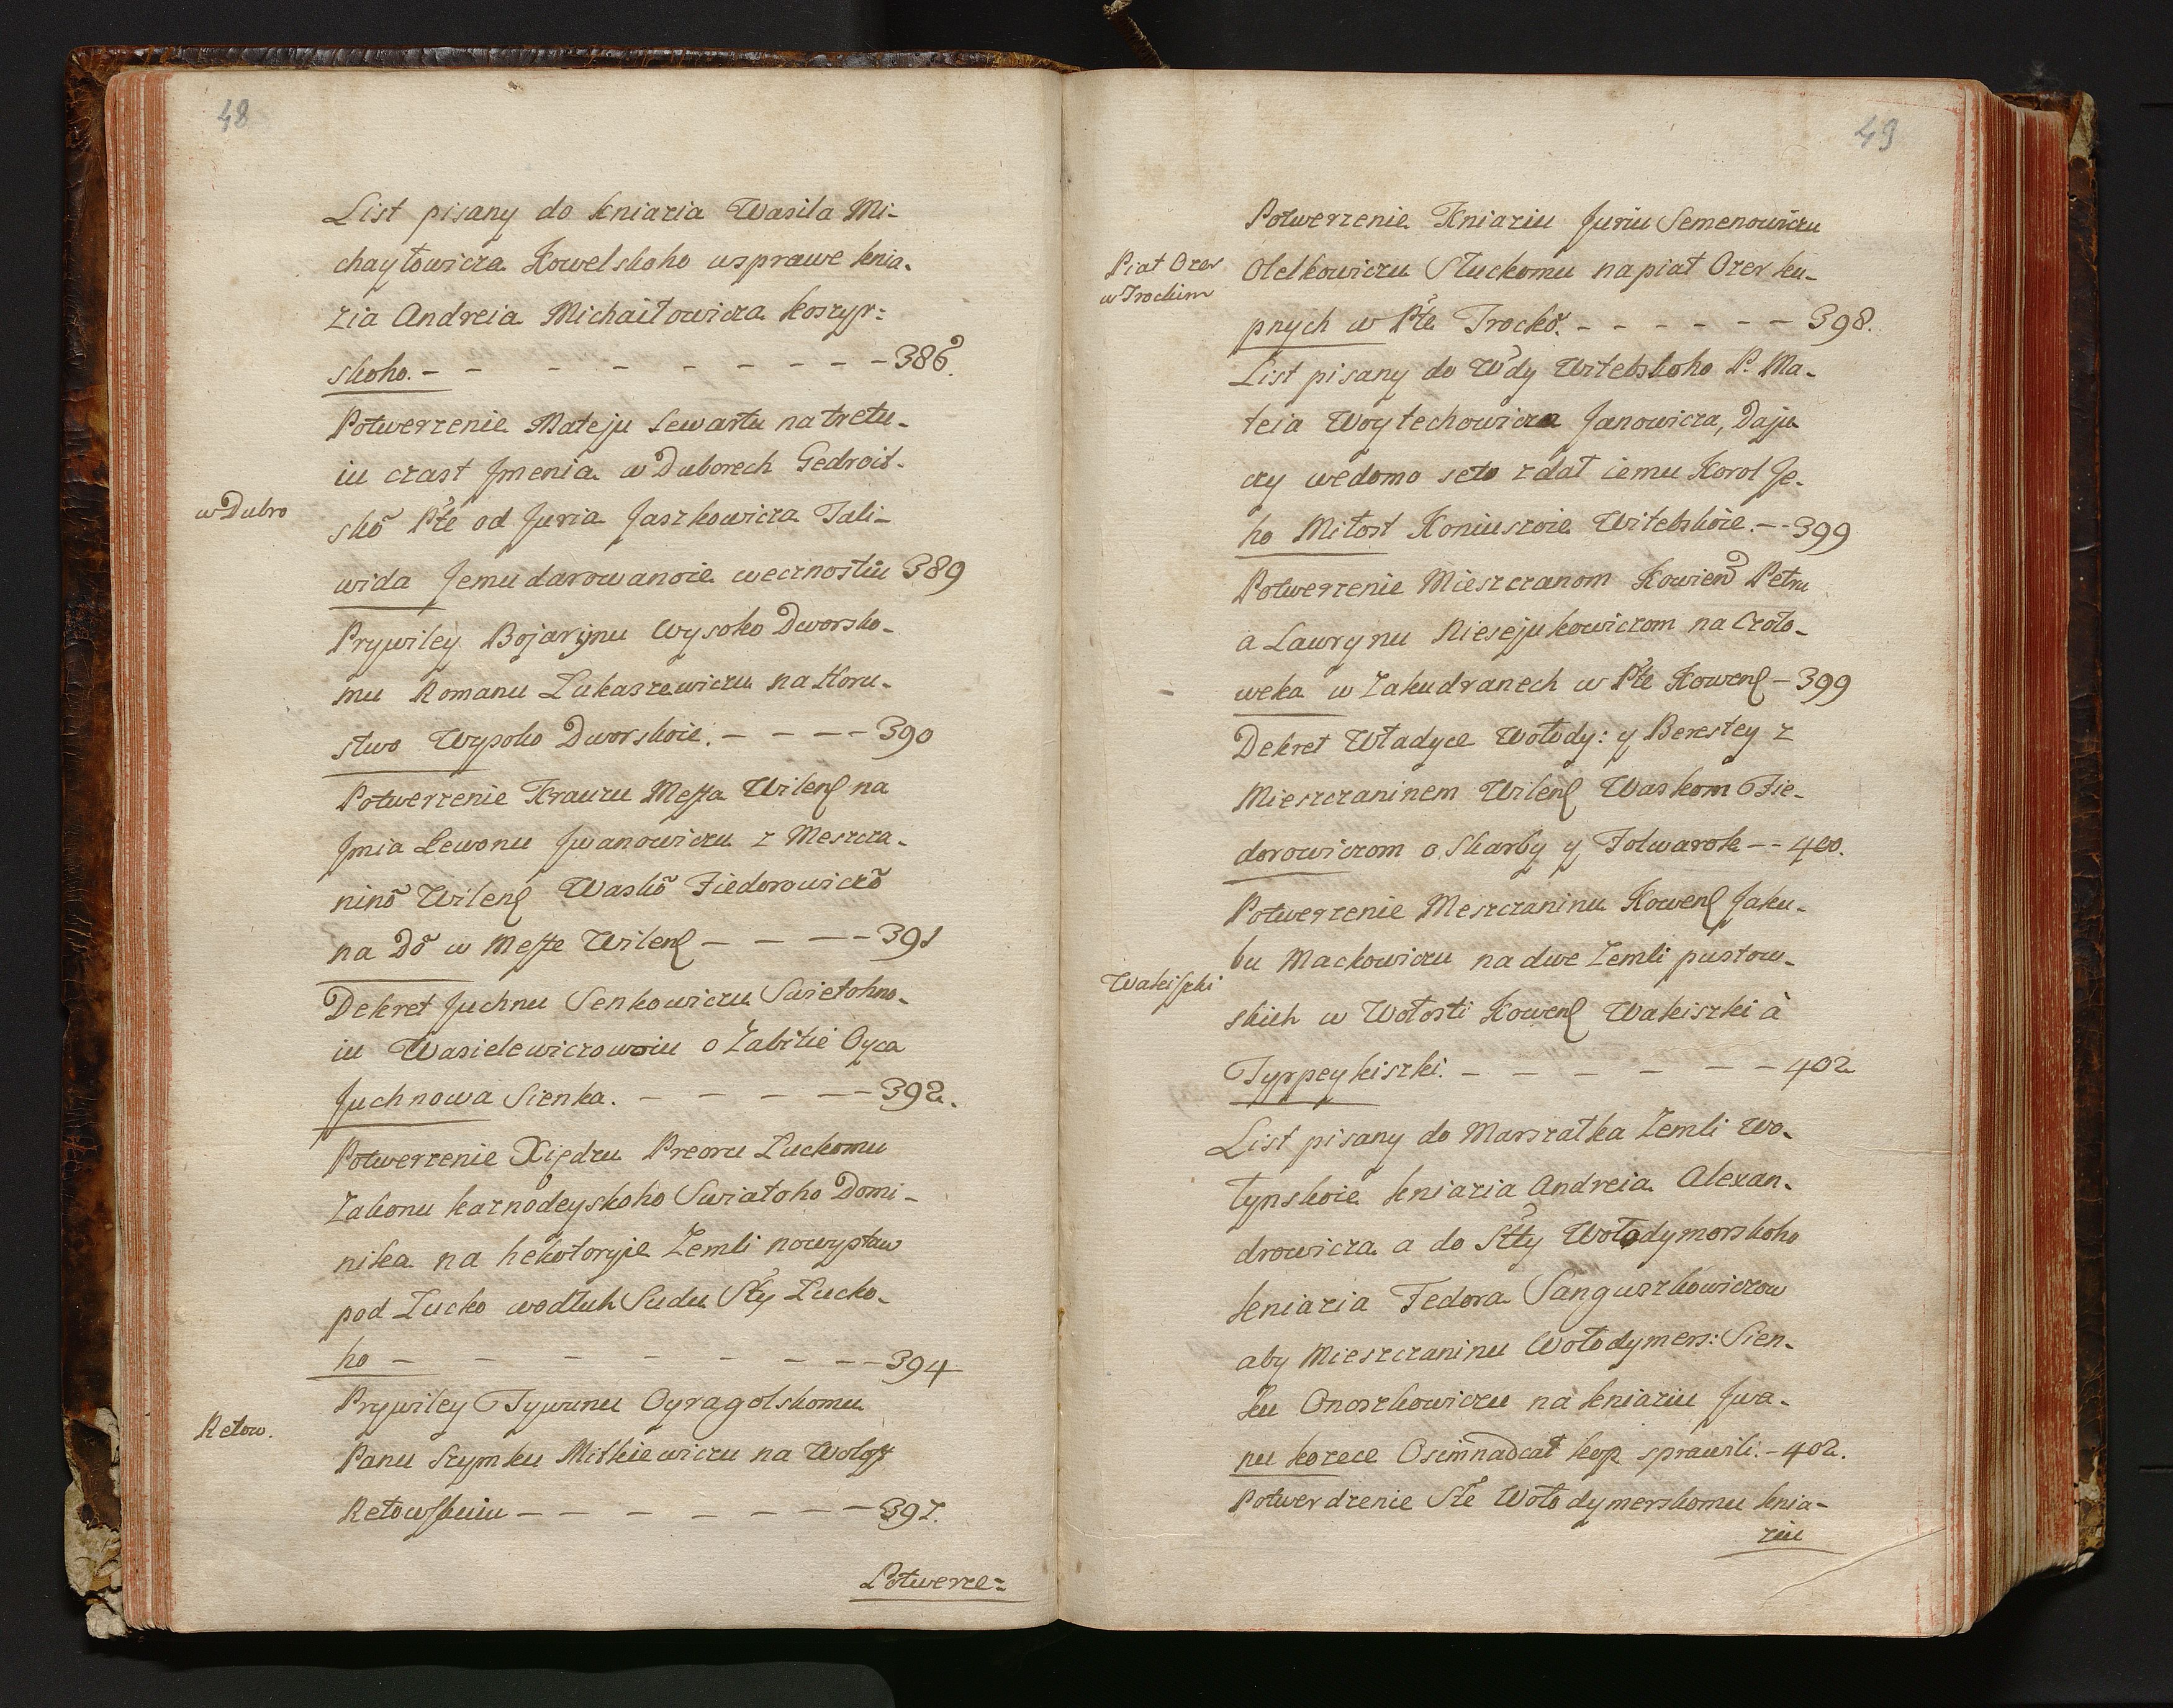 48
List pisany do kniazia Wasila Mi-
chayłowicza Kowelskoho usprawe knia-
zia Andreia Michaiłowicza koszyr:
skoho. - - - - - - - - - 386.
Potwerzenie Mateju Lewartu na tretu-
iu czast Jmenia w Duborech Gedroit-
w Dubro
skõ Pte od Juria Jaszkowicza Tali-
wida Jemu darowanoie wecznostiu 389
Prywiley Bojarynu Wysoko Dworsko-
mu Romanu Łukaszewiczu na Horu-
stwo Wysoko Dworskoie. - - - - 390
Potwerzenie Krawzu Messa Wilen na
Jmia Lewonu Jwanowiczu z Meszcza-
ninõ Wilen Waskõ Fiedorowiczõ
na Dõ w Meste Wilen - - - - 391
Dekret Juchnu Senkowiczu Swietohno-
iu Wasielewiczowoiu o Zabitie Oyca
Juchnowa Sienka. - - - - - 392.
Potwerzenie Xiędzu Preoru Łuckomu
Zakonu kaznodeyskoho Swiatoho Domi-
nika na hekotoryie Zemli nowystaw
pod Łucko wodłuh Sudu Sty Łucko-
ho - - - - - - - - - 394
Prywiley Tywunu Oyragolskomu
Retow.
Panu Szymku Mitkiewiczu na Wołost
Retowskuiu - - - - - - - 397.
Potwerze-
49
Potwerzenie Kniaziu Juriu Semenowiczu
Piat Ozer
w Trockim
Olelkowiczu Słuckomu na piat Ozer ku-
pnych w Pte Trockõ. - - - - - - 398.
List pisany do Wdy Witebskoho P. Ma-
teia Woytechowicza Janowicza, Daju
czy wedomo seto zdał iemu Korol Je-
ho Miłost Koniuszoie Witebskoie. - - 399
Potwerzenie Mieszczanom Kowien Petru
a Lawrynu Niesejukowiczom na Czoło-
weka w Zakudranech w Pte Kowen - 399
Dekret Władyce Wołody: y Berestey z
Mieszczaninem Wilen Waskom Fie-
dorowiczom o Skarby y Folwarok - - 400.
Potwerzenie Meszczaninu Kowen Jaku-
bu Mackowiczu na dwe Zemli pustow-
Wakiszki
skich w Wołosti Kowen Wakiszki à
Tyrpeykiszki. - - - - - - - 402
List pisany do Marszałka Zemli Wo-
łynskoie kniazia Andreia Alexan-
drowicza a do Stty Wołodymorskoho
kniazia Fedora Sanguszkowiczow
aby Mieszczaninu Wołodymers: Sien-
ku Onoszkowiczu na kniaziu Jwa-
nu korece Osimnadcat kop sprawili. - 402.
Potwerdzenie Ste Wołodymerskomu knia-
ziu